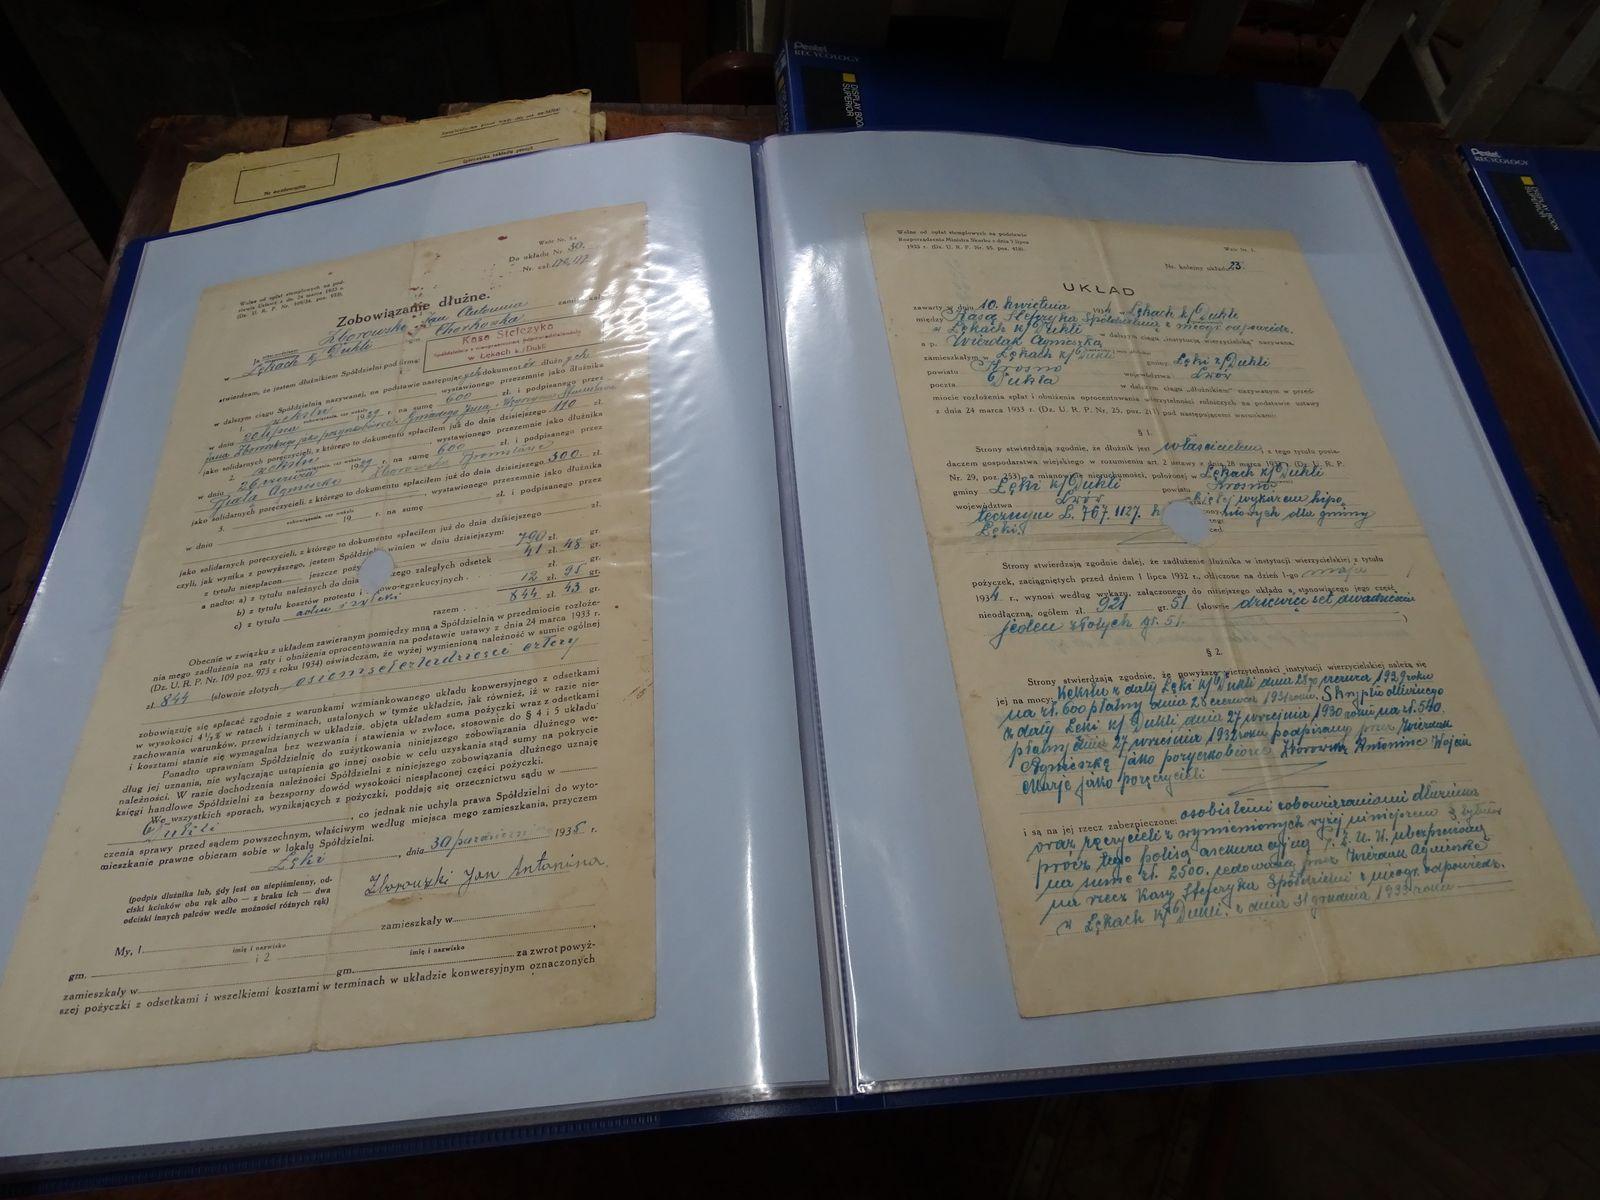 Pentel
RECYCOLOGY
DISPLAY BOOK
SUPERIOR
Pentel
RECYCOLOGY
DISPLAY BOOK
SUPERIOR
Wzór Nr. 5a
Do układu Nr. 30.
Wolne od opłat stemplowych na pod-
Zobowiązanie dłużne.
Zborowski Jan Antonina zamieszkał
w Łękach k/ Dukli gm. Chorkówka
Kasa Stefczyka
w Łękach k./Dukli
stwierdzam, że jestem dłużnikiem Spółdzielni pod firmą:
w dalszym ciągu Spółdzielnią nazywanej, na podstawie następujących dokumentów dłużnych
w dniu 20 lipca 1929 r. na sumę 600 zł. i podpisanego przez
jako solidarnych poręczycieli, z którego to dokumentu spłaciłem już do dnia dzisiejszego 110 zł.
w dniu 26 czerwca 1929 r. na sumę 600 zł. i podpisanego przez
jako solidarnych poręczycieli, z którego to dokumentu spłaciłem już do dnia dzisiejszego 300 zł.
3. 19 r. na sumę zł. i podpisanego przez
w dniu
jako solidarnych poręczycieli, z którego to dokumentu spłaciłem już do dnia dzisiejszego zł.
czyli, jak wynika z powyższego, jestem Spółdzielni winien w dniu dzisiejszym:
z tytułu niespłacon jeszcze poży 790 zł. gr.
a nadto: a) z tytułu należnych do dnia szego zaległych odsetek 41 zł. 48 gr.
b) z tytułu kosztów protestu i owo-egzekucyjnych zł. gr.
c) z tytułu 12 zł. 95 gr.
razem 844 zł. 43 gr.
Obecnie w związku z układem zawieranym pomiędzy mną a Spółdzielnią w przedmiocie rozłoże-
nia mego zadłużenia na raty i obniżenia oprocentowania na podstawie ustawy z dnia 24 marca 1933 r.
(Dz. U. R. P. Nr 109 poz. 973 z roku 1934) oświadczam, że wyżej wymienioną należność w sumie ogólnej
zł. 844 (słownie złotych osiemsetczterdzieści cztery
zobowiązuję się spłacać zgodnie z warunkami wzmiankowanego układu konwersyjnego z odsetkami
w wysokości 4½% w ratach i terminach, ustalonych w tymże układzie, jak również, iż w razie nie-
zachowania warunków, przewidzianych w układzie, objęta układem suma pożyczki wraz z odsetkami
i kosztami stanie się wymagalna bez wezwania i stawienia w zwłoce, stosownie do § 4 i 5 układu.
Ponadto uprawniam Spółdzielnię do zużytkowania niniejszego zobowiązania dłużnego we-
dług jej uznania, nie wyłączając ustąpienia go innej osobie w celu uzyskania stąd sumy na pokrycie
należności. W razie dochodzenia należności Spółdzielni z niniejszego zobowiązania dłużnego uznaję
księgi handlowe Spółdzielni za bezsporny dowód wysokości niespłaconej części pożyczki.
We wszystkich sporach, wynikających z pożyczki, poddaję się orzecznictwu sądu w
Dukli, co jednak nie uchyla prawa Spółdzielni do wyto-
czenia sprawy przed sądem powszechnym, właściwym według miejsca mego zamieszkania, przyczem
mieszkanie prawne obieram sobie w lokalu Spółdzielni.
Łęki, dnia 30 1935 r.
(podpis dłużnika lub, gdy jest on niepiśmienny, od-
ciski kciuków obu rąk albo — z braku ich — dwa
odciski innych palców wedle możności różnych rąk)
Zborowski Jan Antonina
zamieszkały w
My, 1
imię i nazwisko
i 2
imię i nazwisko
gm.
gm. za zwrot powyż-
zamieszkały w
szej pożyczki z odsetkami i wszelkiemi kosztami w terminach w układzie konwersyjnym oznaczonych
Wolne od opłat stemplowych na podstawie
Rozporządzenia Ministra Skarbu z dnia 7 lipca
1933 r. (Dz. U. R. P. Nr. 55, poz. 418).
Wzór Nr. 1.
Nr. kolejny układu 23.
UKŁAD
zawarty w dniu 10. kwietnia 1934 w Łękach k/ Dukli
między Kasą Stefczyka Spółdzielnią z nieogr. odpowiedz.
w Łękach k/ Dukli w dalszym ciągu „instytucją wierzycielską" nazywaną,
a p. Wierdak Agnieszką
zamieszkałym w Łękach k/ Dukli gminy Łęki k/ Dukli
powiatu Krosno województwa Lwów
poczta Dukla w dalszym ciągu „dłużnikiem" nazywanym w przed-
miocie rozłożenia spłat i obniżenia oprocentowania wierzytelności rolniczych na podstawie ustawy
z dnia 24 marca 1933 r. (Dz. U. R. P. Nr. 25, poz. 211) pod następującemi warunkami:
§ 1.
Strony stwierdzają zgodnie, że dłużnik jest właścicielem, z tego tytułu posia-
daczem gospodarstwa wiejskiego w rozumieniu art. 2 ustawy z dnia 28 marca 1933 r. (Dz. U. R. P.
Nr. 29, poz. 253), a mianowicie nieruchomości, położonej w Łękach k/ Dukli
gminy Łęki k/ Dukli powiatu Krosno
województwa Lwów objętej wykazem hipo-
tecznym L. 767. 1127. gruntowych dla gminy
Łęki.
Strony stwierdzają zgodnie dalej, że zadłużenie dłużnika w instytucji wierzycielskiej z tytułu
pożyczek, zaciągniętych przed dniem 1 lipca 1932 r., obliczone na dzień 1-go maja
1934 r., wynosi według wykazu, załączonego do niniejszego układu a stanowiącego jego część
nieodłączną, ogółem zł. 921 gr. 51 (słownie dziewięćset dwadzieścia
jeden złotych gr. 51.)
§ 2.
Strony stwierdzają zgodnie, że powyższe wierzytelności instytucji wierzycielskiej należą się
jej na mocy: Wekslu z daty Łęki k/ Dukli dnia 28go czerwca 1929 roku
na zł. 600 płatny dnia 28 czerwca 1931 roku. Skryptu dłużnego
z daty Łęki k/ Dukli dnia 27 września 1930 roku na zł. 540.
płatny dnia 27 września 1932 roku podpisany przez Wierdak
Agnieszkę jako pożyczkobiorcę Zborowską Antoninę Wojcik
Marję jako poręczycieli
i są na jej rzecz zabezpieczone: osobistemi zobowiązaniami dłużnika
oraz ręczycieli wymienionych wyżej
prócz tego polisą asekuracyjną P.Z.U.W. ubezpieczoną
na sumę zł. 2500. cedowaną przez Wierdak Agnieszkę
na rzecz Kasy Stefczyka Spółdzielni z nieogr. odpowiedz.
w Łękach k/ Dukli. z dnia 31 grudnia 1933 roku